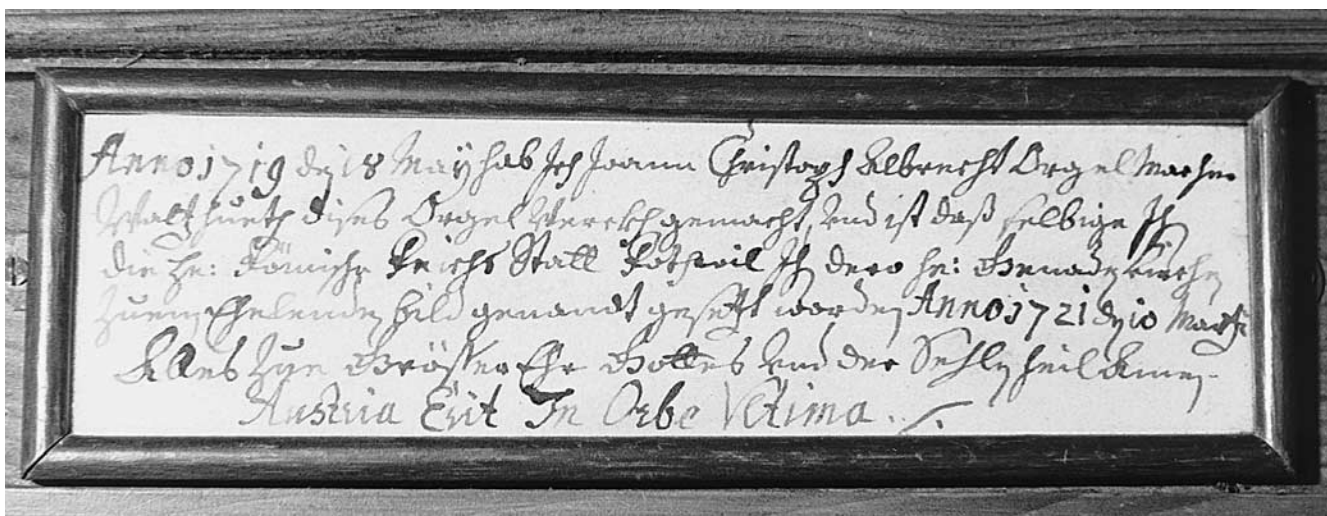 Anno 1719 dy 18 May hab Ich Joann Christoph Albrecht Orgel Macher
Waltzhueth dises Orgel Werckh gemacht, und ist daß selbige In
die He: Römische Reichs Statt Rothweil In dero he: Genaden Kirchen
Zuem Ehelenden bild genandt gesetzt worden Anno 1721 dy 10 Marti
Alles Zue Grösser Ehr Gottes und der Sehlen heil Amen.
Austria Erit In Orbe Vltima.